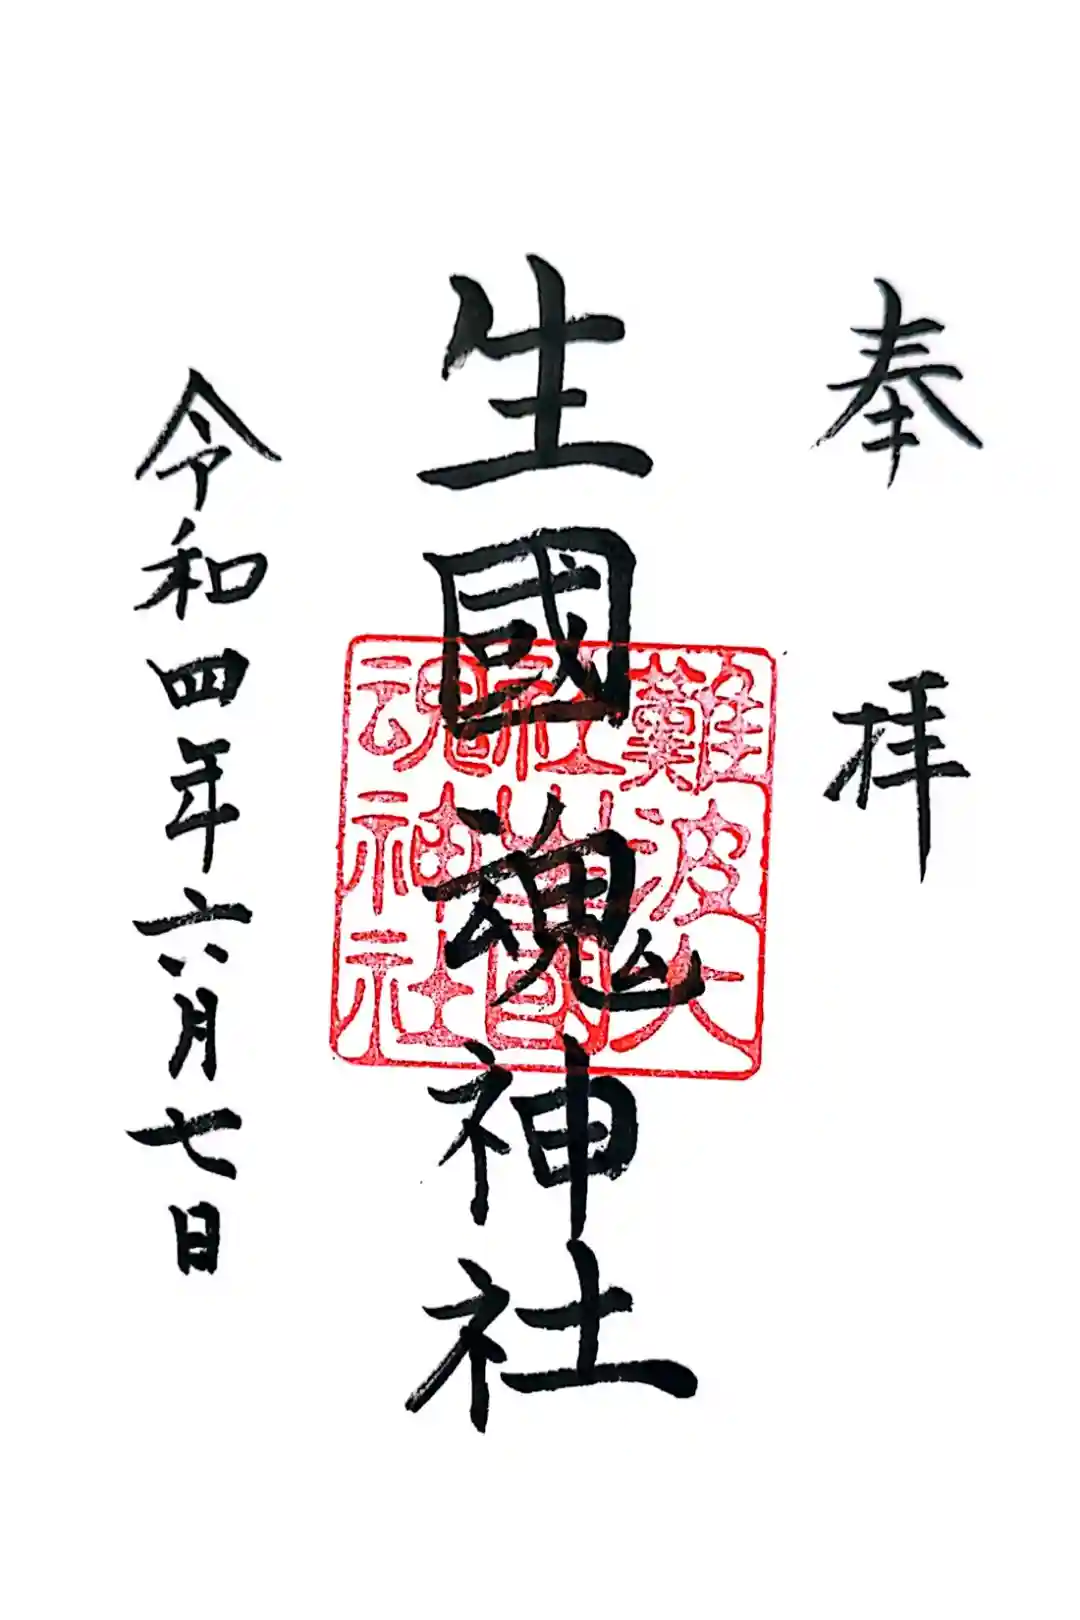 奉拝
生國魂神社
難波大
社生國
魂神社
令和四年六月七日